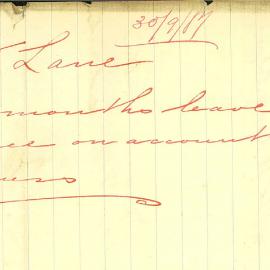 30/9/17
Lane
months leave
on account